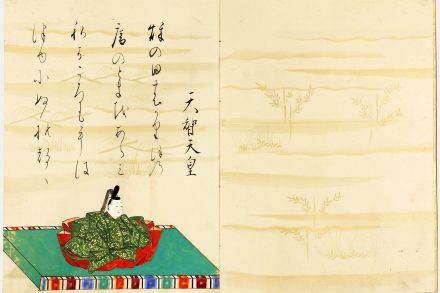 天智天皇
秋の田のかりほの
庵のとまをあらみ
わかころも手は
つゆにぬれつゝ